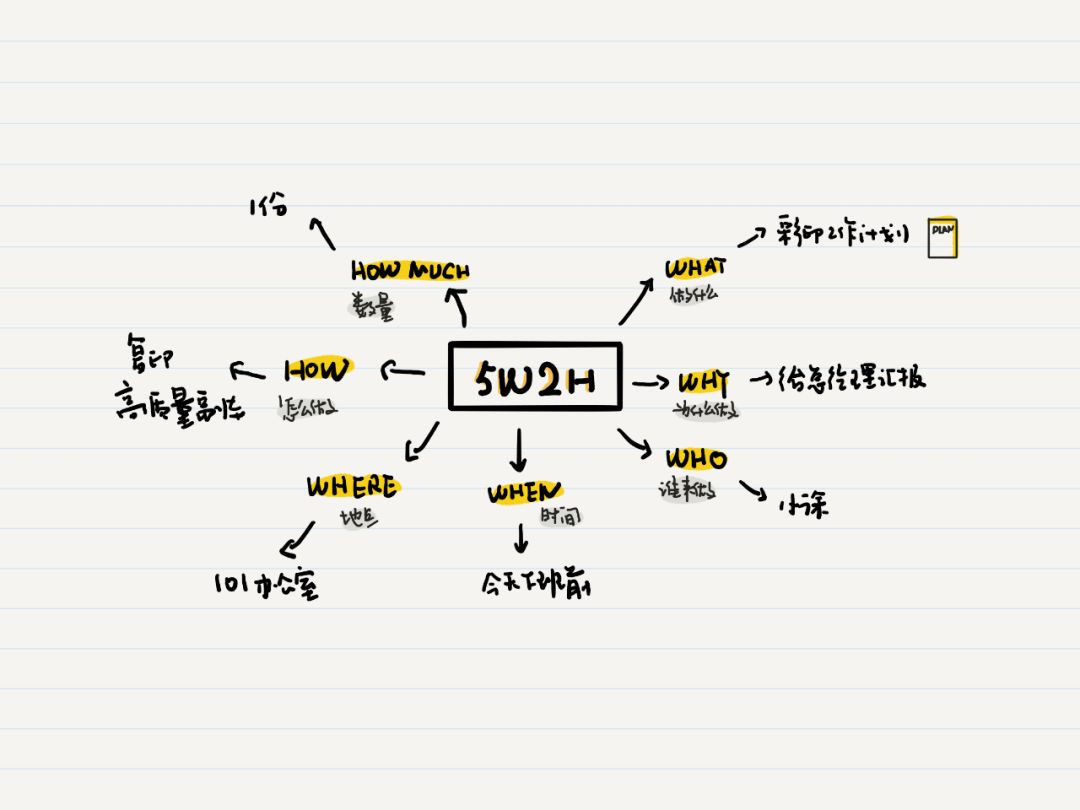 1份
HOW MUCH
数量
复印
高质量副本
HOW
怎么做
WHERE
地点
101办公室
5W2H
WHEN
时间
今天下班前
WHAT
做什么
彩印工作计划
PLAN
WHY
为什么做
给总经理汇报
WHO
谁来做
小涂